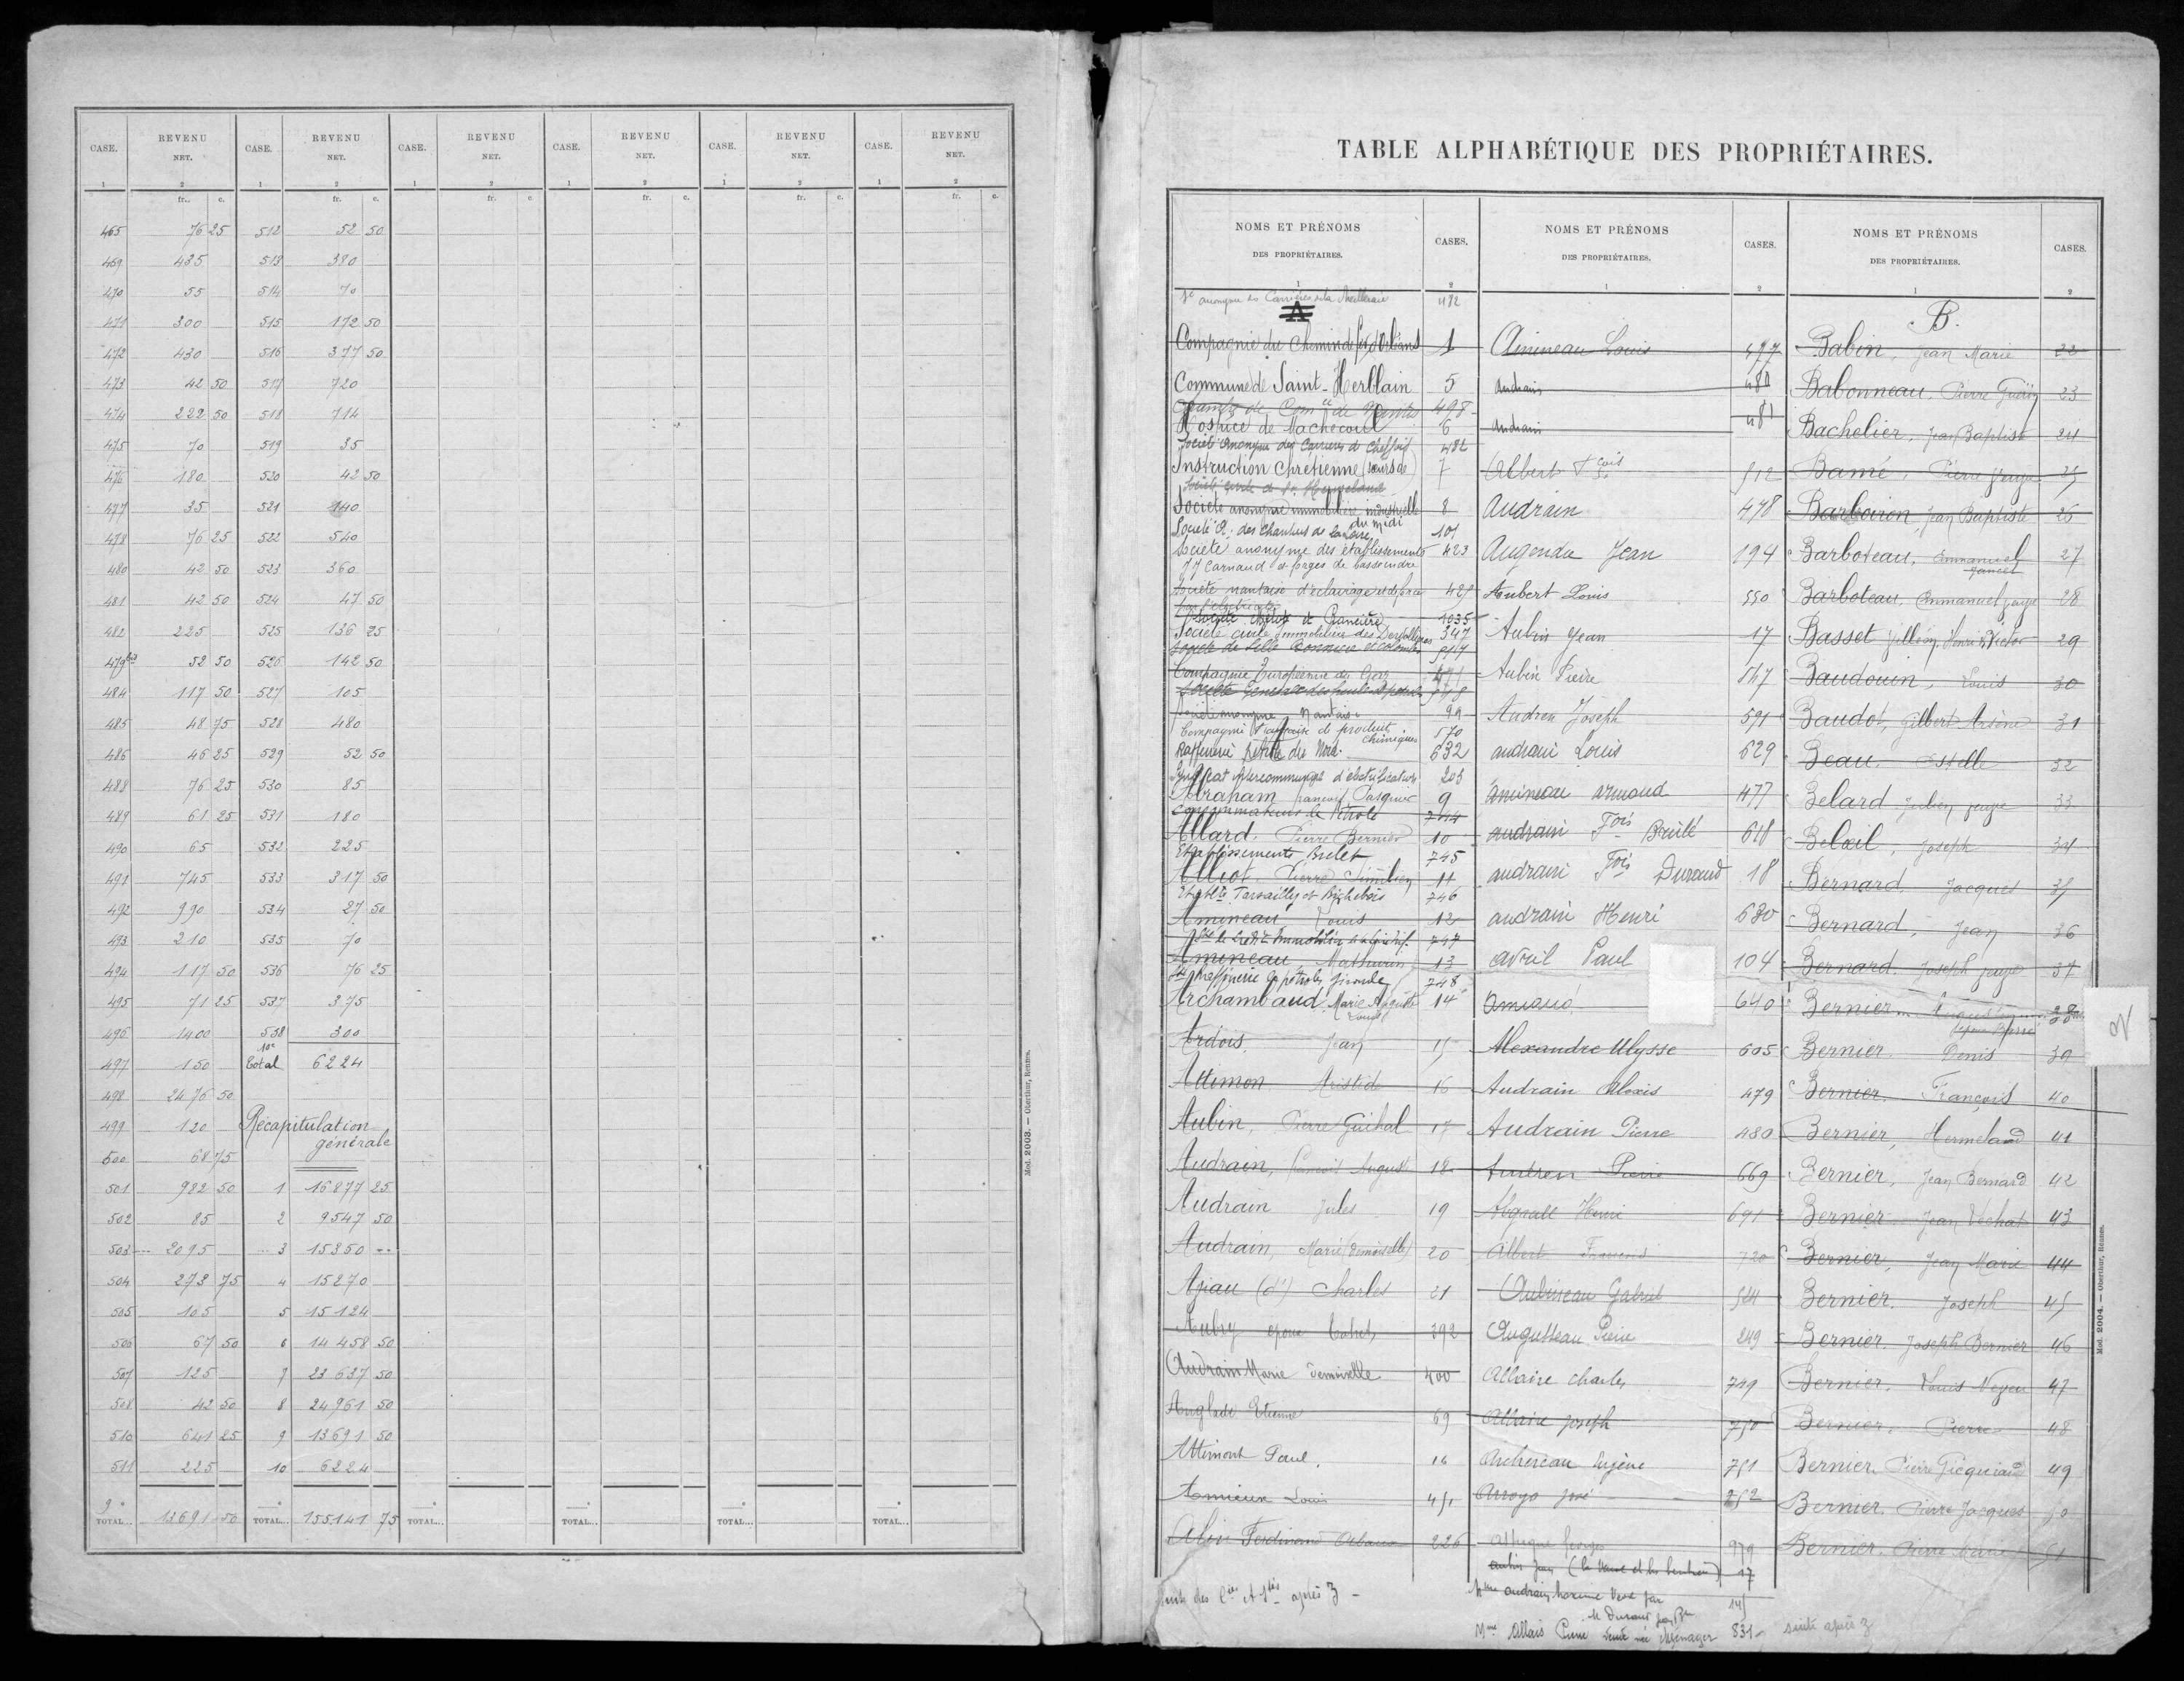 CASE. REVENU NET. CASE. REVENU NET. CASE. REVENU NET. CASE. REVENU NET. CASE. REVENU NET. CASE. REVENU NET.
1 2 1 2 1 2 1 2 1 2 1 2
fr. c. fr. c. fr. c. fr. c. fr. c. fr. c.
465 76 25 512 52 50
469 435 513 380
470 55 514 70
471 300 515 172 50
472 430 516 377 50
473 42 50 517 720
474 222 50 518 714
475 70 519 35
476 180 520 42 50
477 35 521 140
478 76 25 522 540
480 42 50 523 360
481 42 50 524 47 50
482 225 525 136 25
479bis 52 50 526 142 50
484 117 50 527 105
485 48 75 528 480
486 46 25 529 52 50
488 76 25 530 85
489 61 25 531 180
490 65 532 225
491 745 533 317 50
492 990 534 27 50
493 210 535 70
494 117 50 536 76 25
495 71 25 537 375
496 1400 538 300
497 150 10e Total 6224
498 2476 50
499 120 Récapitulation générale
500 68 75
501 982 50 1 16877 25
502 85 2 9547 50
503 2095 3 15350
504 273 75 4 15270
505 105 5 15124
506 67 50 6 14458 50
507 125 7 23637 50
508 42 50 8 24961 50
510 641 25 9 13691 50
511 225 10 6224
9e TOTAL... 13691 50 TOTAL... 155141 75 TOTAL... TOTAL... TOTAL... TOTAL...
Mod. 2003. — Oberthur, Rennes.
TABLE ALPHABÉTIQUE DES PROPRIÉTAIRES.
NOMS ET PRÉNOMS DES PROPRIÉTAIRES. CASES. NOMS ET PRÉNOMS DES PROPRIÉTAIRES. CASES. NOMS ET PRÉNOMS DES PROPRIÉTAIRES. CASES.
1 2 1 2 1 2
Sté anonyme des Carrières de la Meilleraie 482
A
Compagnie du Chemin de fer d'Orléans 1
Commune de Saint-Herblain 5
Chambre de Comce de Nantes 498
Hospice de Machecoul 6
Société Anonyme des Carrières de 482
Instruction Chrétienne (sœurs de) 7
Société anonyme immobilière industrielle du midi 8
Société A. des Chantiers de la Loire 101
Société anonyme des établissements 423
JJ Carnaud et forges de basse indre
Société nantaise d'éclairage et de force 425
1035
Société civile immobilière des 347
Compagnie Européenne du Gaz
Société anonyme Nantaise 99
Compagnie Française de produits chimiques 570
Raffinerie Pétrole du Nord 632
Syndicat intercommunal d'électrification 203
Abraham François Pasquier 9
Consommateurs de Pétrole 744
Allard. Pierre Bernier 10
Etablissements Brelet 745
Alliot. Pierre Similien 11
746
Amineau Louis 12
747
Amineau, Mathurin 13
Sté Raffinerie de pétroles Gironde 748
Archambaud Marie Auguste Louis 14
Ardois. Jean 15
Attimon Aristide 16
Aubin, Pierre Guihal 17
Audrain, François August 18
Audrain Jules 19
Audrain, Marie (demoiselle) 20
Charles 21
Aubry epoux 392
Audrain Marie demoiselle 400
Anglade Etienne 69
Attimont Paul. 16
Amieux Louis 451
226
Suite des Cies et Stés après Z
Amineau Louis 497
Audrain 480
Audrain 481
Albert Fçois 512
Audrain 478
Augendu Jean 194
Aubert Louis 550
Aubin Jean 17
Aubin Pierre 547
Audren Joseph 591
audrain Louis 629
amineau armand 477
audrain Fois Brulé 618
audrain Fois Durand 18
audrain Henri 630
avril Paul 104
amiaud 640
Alexandre Ulysse 605
Audrain Alexis 479
Audrain Pierre 480
Audren Pierre 669
Abgrall Henri 691
Albert Francois 720
Aubineau Gabriel 524
Augutteau Pierre 249
Allaire charles 749
Allaire joseph 750
Archereau Eugène 751
Arroyo José 252
Georges 979
aubin Jean (la Veuve et les héritiers) 17
145
Mme Allais Pierre Veuve née Ménager 831
suite après Z
B.
Babin, Jean Marie 22
Babonneau. Pierre 23
Bachelier, Jean Baptiste 24
Bamé, Pierre 25
Barboiron Jean Baptiste 26
Barboteau, Emmanuel 27
Barboteau, Emmanuel 28
Basset Henri Victor 29
Baudouin, Louis 30
Baudot, Gilbert Arsène 31
Beau. Estelle 32
Belard Julien 33
Belœil, Joseph 34
Bernard, Jacques 35
Bernard, Jean 36
Bernard. Joseph 37
Bernier 38
Bernier. Denis 39
Bernier. François 40
Bernier, Hermeland 41
Bernier, Jean Bernard 42
Bernier Jean 43
Bernier, Jean Marie 44
Bernier. Joseph 45
Bernier. Joseph Bernier 46
Bernier. Louis 47
Bernier. Pierre 48
Bernier. Pierre Gicquiaud 49
Bernier. Pierre Jacques 50
Bernier. Pierre Marie 51
Mod. 2004. — Oberthur, Rennes.